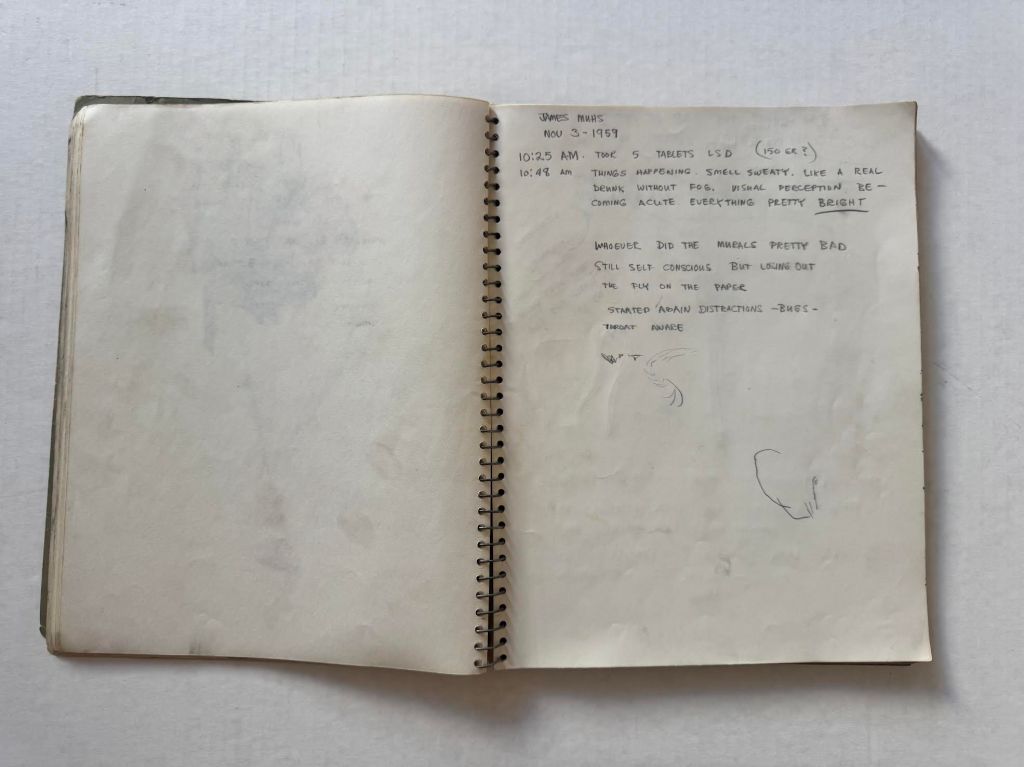 JAMES MUHS
NOV 3-1959
10:25 AM. TOOK 5 TABLETS LSD (150 GR?)
10:48 AM THINGS HAPPENING. SMELL SWEATY. LIKE A REAL
DRUNK WITHOUT FOG. VISUAL PERCEPTION BE-
COMING ACUTE EVERYTHING PRETTY BRIGHT
WHOEVER DID THE MURALS PRETTY BAD
STILL SELF CONSCIOUS BUT LOSING OUT
THE FLY ON THE PAPER
STARTED AGAIN DISTRACTIONS -BUGS-
THROAT AWARE